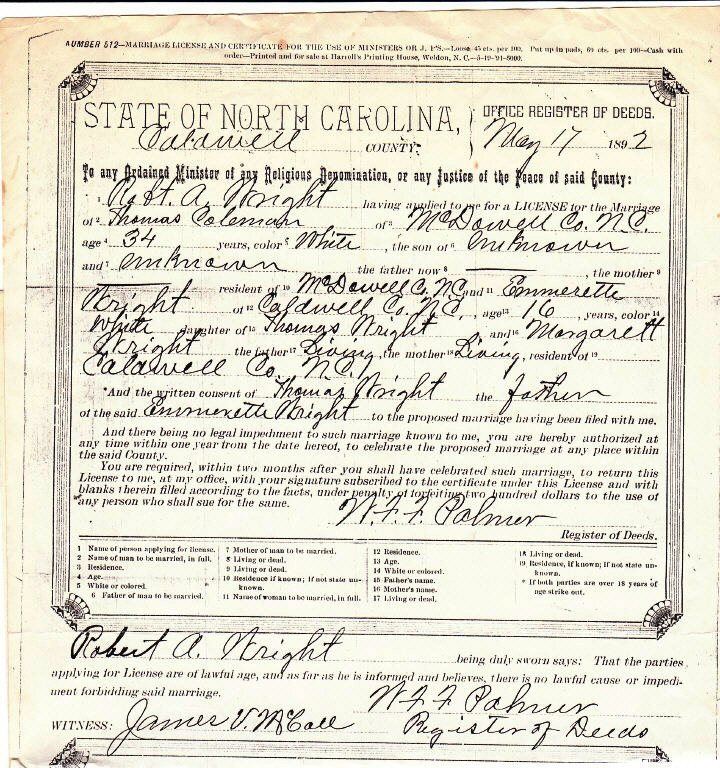 NUMBER 512—MARRIAGE LICENSE AND CERTIFICATE FOR THE USE OF MINISTERS OR J. P'S.—Loose, 45 cts. per 100, Put up in pads, 60 cts. per 100—Cash with
order—Printed and for sale at Harrell's Printing House, Weldon, N. C.—5-19-'91-5000.
STATE OF NORTH CAROLINA, OFFICE REGISTER OF DEEDS.
Caldwell COUNTY. May 17 1892
To any Ordained Minister of any Religious Denomination, or any Justice of the Peace of said County:
1 Robt. A. Wright having applied to me for a LICENSE for the Marriage
of 2 Thomas Coleman of 3 McDowell Co. N.C.
age 4 34 years, color 5 White, the son of 6 unknown
and 7 unknown the father now 8 ———, the mother 9
——— resident of 10 McDowell C. N.C. and 11 Emmerette
Wright of 12 Caldwell Co. N.C., age 13 16, years, color 14
White daughter of 15 Thomas Wright and 16 Margarett
Wright the father 17 Living, the mother 18 Living, resident of 19
Caldwell Co. N.C.
*And the written consent of Thomas Wright the father
of the said Emmerette Wright to the proposed marriage having been filed with me.
And there being no legal impediment to such marriage known to me, you are hereby authorized at
any time within one year from the date hereof, to celebrate the proposed marriage at any place within
the said County.
You are required, within two months after you shall have celebrated such marriage, to return this
License to me, at my office, with your signature subscribed to the certificate under this License and with
blanks therein filled according to the facts, under penalty of forfeiting two hundred dollars to the use of
any person who shall sue for the same.
W. F. F. Palmer
Register of Deeds.
1 Name of person applying for license.
2 Name of man to be married, in full.
3 Residence.
4 Age.
5 White or colored.
6 Father of man to be married.
7 Mother of man to be married.
8 Living or dead.
9 Living or dead.
10 Residence if known; if not state unknown.
11 Name of woman to be married, in full.
12 Residence.
13 Age.
14 White or colored.
15 Father's name.
16 Mother's name.
17 Living or dead.
18 Living or dead.
19 Residence, if known; if not state unknown.
* If both parties are over 18 years of
age strike out.
Robert A. Wright being duly sworn says: That the parties
applying for License are of lawful age, and as far as he is informed and believes, there is no lawful cause or impedi-
ment forbidding said marriage.
W. F. F. Palmer
WITNESS: James V. McCall Register of Deeds